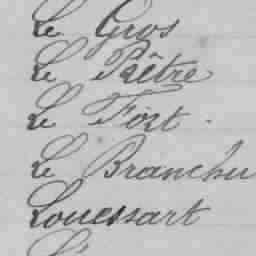 Le Gros
Le Rêtre
Le Fort.
Le Branchu
Louessart